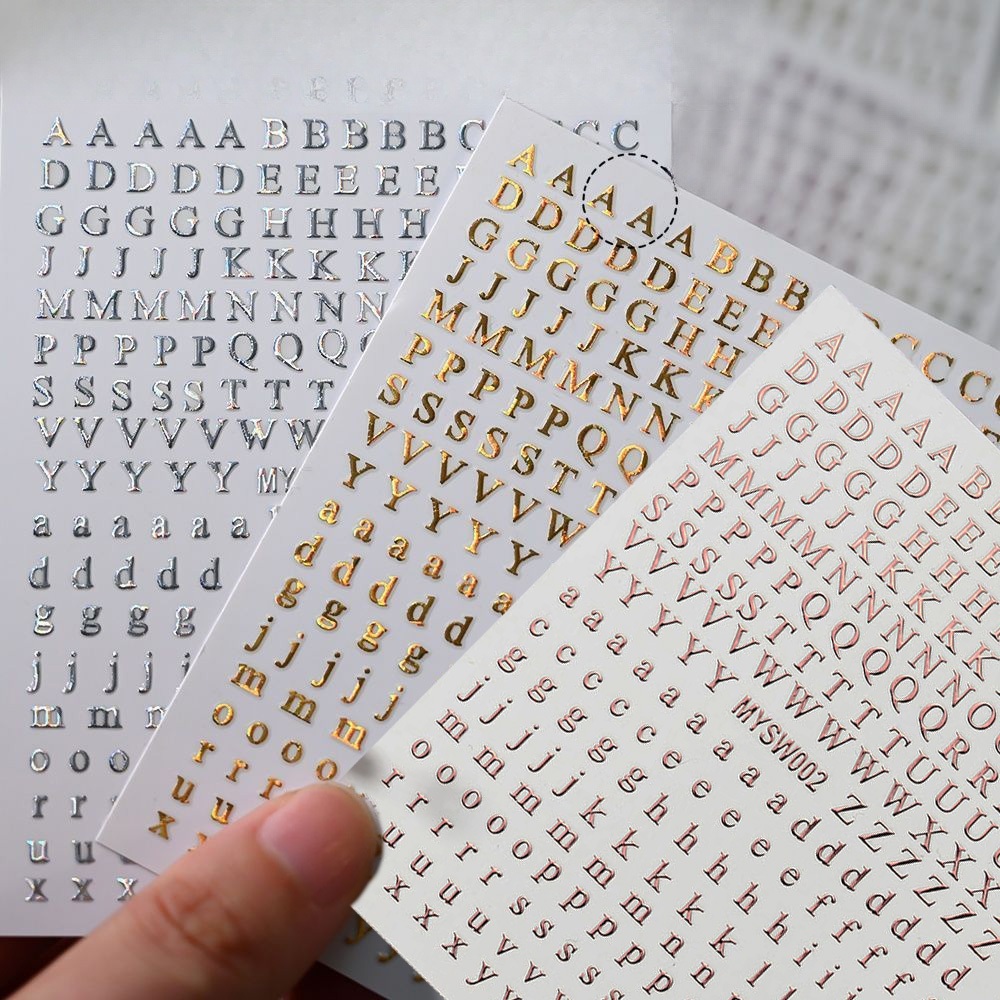 A A A A A B B B B B C C C
D D D D D E E E E E
G G G G G H H H H
J J J J K K K K
M M M M M N N N N
P P P P P Q Q Q
S S S S S T T T
V V V V V W W
Y Y Y Y Y MY
a a a a a a
d d d d d
g g g g
j j j j
m m
o o o
r r
u u
x x x
A A A A A B B B C C C
D D D D D E E E
G G G G G H H
J J J J K K K
M M M M M N N
P P P P P Q Q
S S S S S T T
V V V V V W
Y Y Y Y Y
a a a a a
d d d d d
g g g g
j j j j j
m m m
o o o o
r r r
u u
x
A A A A A B B
D D D D D E E E
G G G G G H H H
J J J J K K K K
M M M M M N N N N O
P P P P P Q Q Q Q R R
S S S S S T T T T U U U
V V V V V W W W W W X X X
Y Y Y Y Y MYSW002 Z Z Z Z Z
a a a a a a a a d d d d d
c c c c e e e e f f f f
g g g g g h h h h h i i
j j j j k k k k
m m m m m n n
o o o p p p p
r r r r s s s s
u u u u v v
x x x y